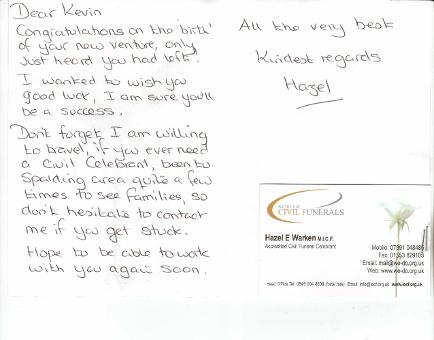 Dear Kevin
Congratulations on the birth
of your new venture, only
just heard you had left.
I wanted to wish you
good luck, I am sure you'll
be a success.
Don't forget I am willing
to travel, if you ever need
a Civil Celebrant, been to
Spalding area quite a few
times to see families, so
don't hesitate to contact
me if you get stuck.
Hope to be able to work
with you again soon.
All the very best
Kindest regards
Hazel
CIVIL FUNERALS
Hazel E Warken M.I.C.F.
Accredited Civil Funeral Celebrant
Mobile: 07891 048486
Fax: 01553 829103
Email: mail@we-do.org.uk
Web: www.we-do.org.uk
Head Office Tel: 0845 004 8608 (local rate) Email: info@iocf.org.uk www.iocf.org.uk